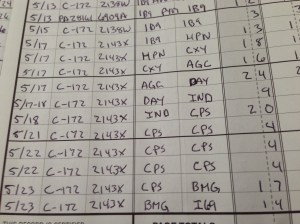 5/13 C-172 2138W IB9 IB9
5/15 C-172 2138W IB9 IB9 1 3
5/17 C-172 2143X IB9 MPN 1 3
5/17 C-172 2143X MPN CXY 1 8
5/17 C-172 2143X CXY AGC 1 6
5/17 C-172 2143X AGC DAY 2 4
5/17-18 C-172 2143X DAY IND 9
5/18 C-172 2143X IND CPS 2 0
5/21 C-172 2143X CPS CPS 4
5/22 C-172 2143X CPS CPS 4
5/22 C-172 2143X CPS CPS 4
5/23 C-172 2143X CPS BMG 1 7
5/23 C-172 2143X BMG I69 1 4